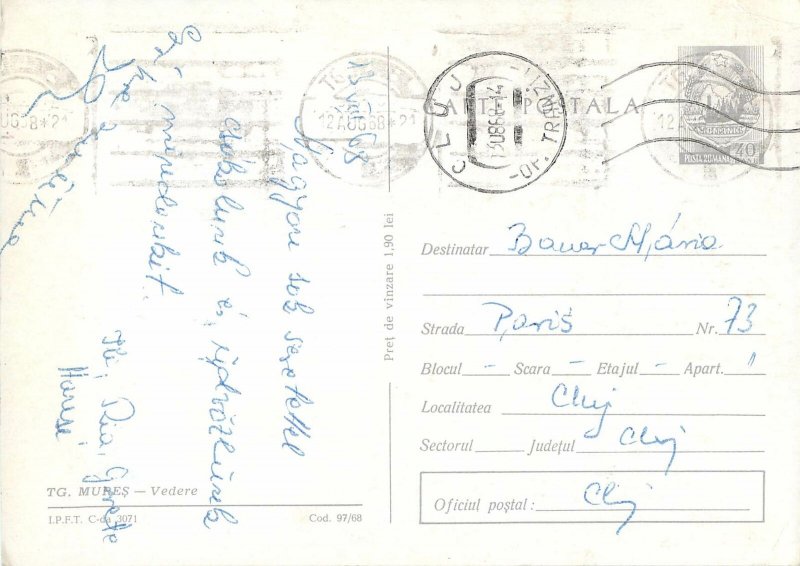 CARTE POSTALA
CLUJ
12 AUG 68 * 21
POSTA ROMANA
40
13 VIII 68
Nagyon sok szeretettel
csókolunk és üdvözlünk
mindenkit.
Ili, Ria, Gyuszi
Marosi
TG. MUREȘ — Vedere
I.P.F.T. C-da 3071
Cod. 97/68
Preț de vînzare 1,90 lei
Destinatar Bauer Mária
Strada Paris Nr. 73
Blocul – Scara – Etajul – Apart. 1
Localitatea Cluj
Sectorul Județul Cluj
Oficiul poștal : Cluj